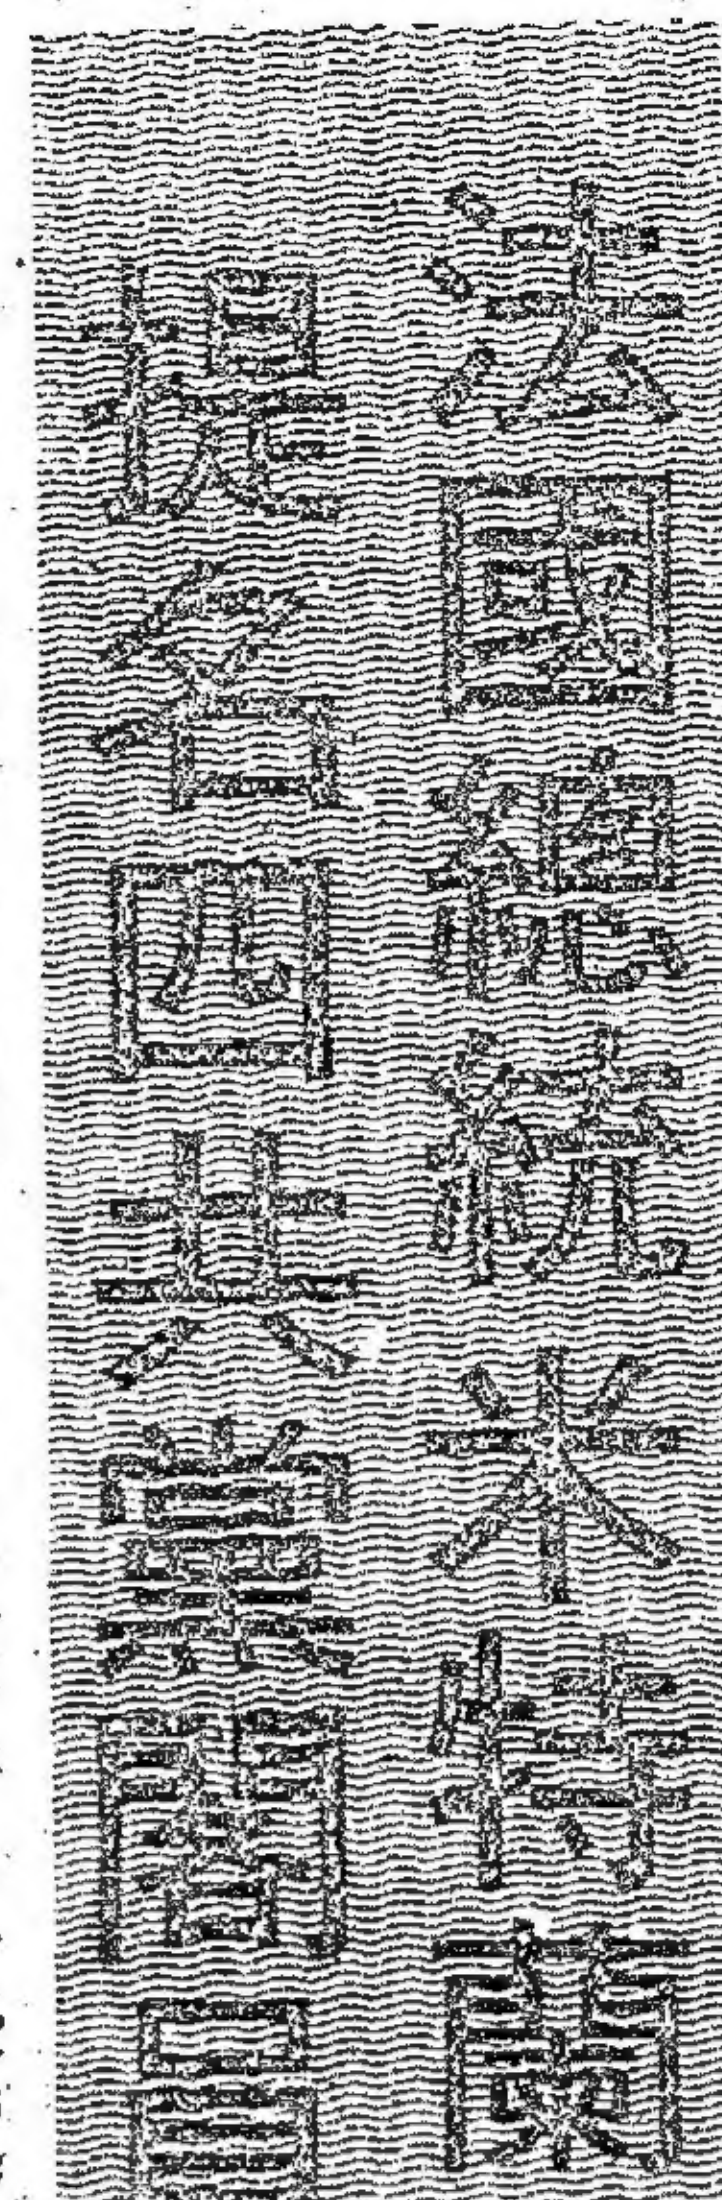 法國總統米特蘭
提名四共黨閣員